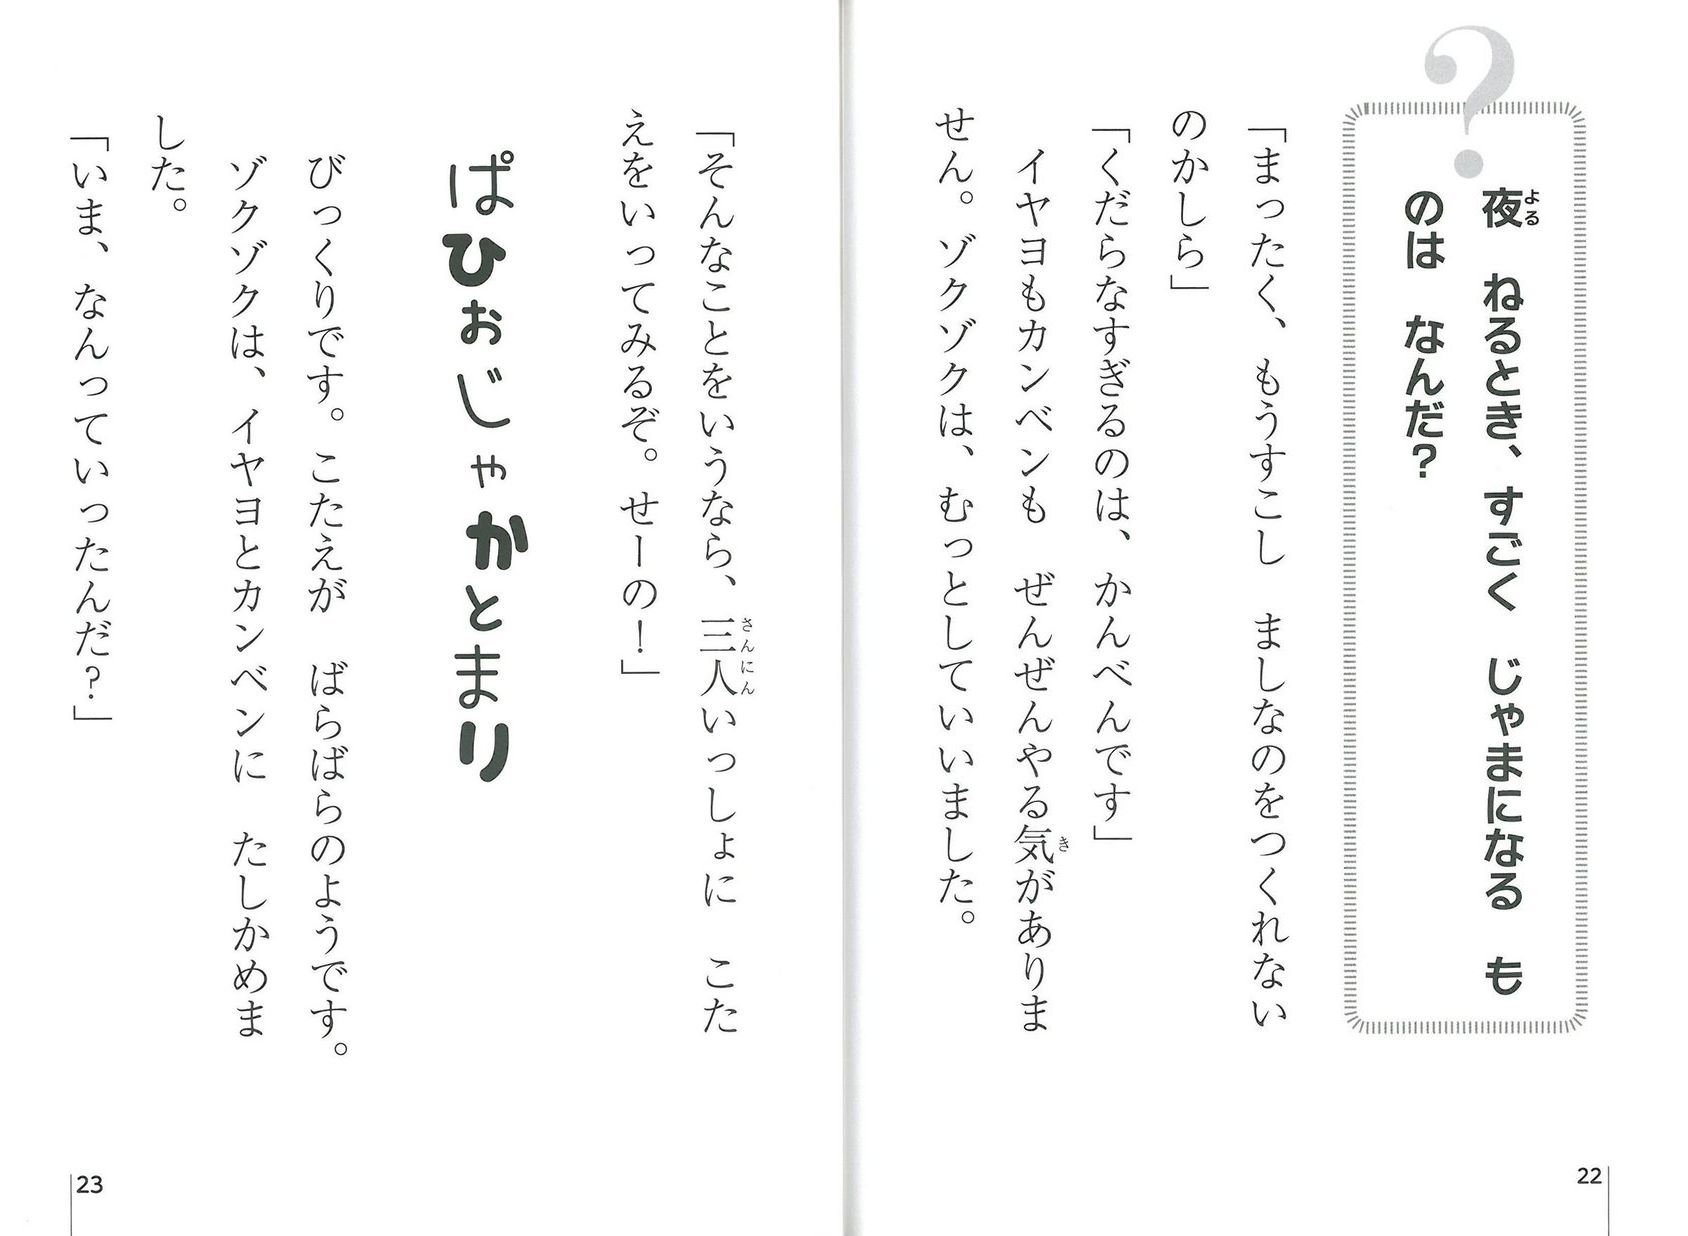 ?
夜 ねるとき、すごく じゃまになる も
のは なんだ?
「まったく、もうすこし ましなのをつくれない
のかしら」
「くだらなすぎるのは、かんべんです」
イヤヨもカンベンも ぜんぜんやる気がありま
せん。ゾクゾクは、むっとしていいました。
22
「そんなことをいうなら、三人いっしょに こた
えをいってみるぞ。せーの!」
ぱひぉじゃかとまり
びっくりです。こたえが ばらばらのようです。
ゾクゾクは、イヤヨとカンベンに たしかめま
した。
「いま、なんっていったんだ?」
23